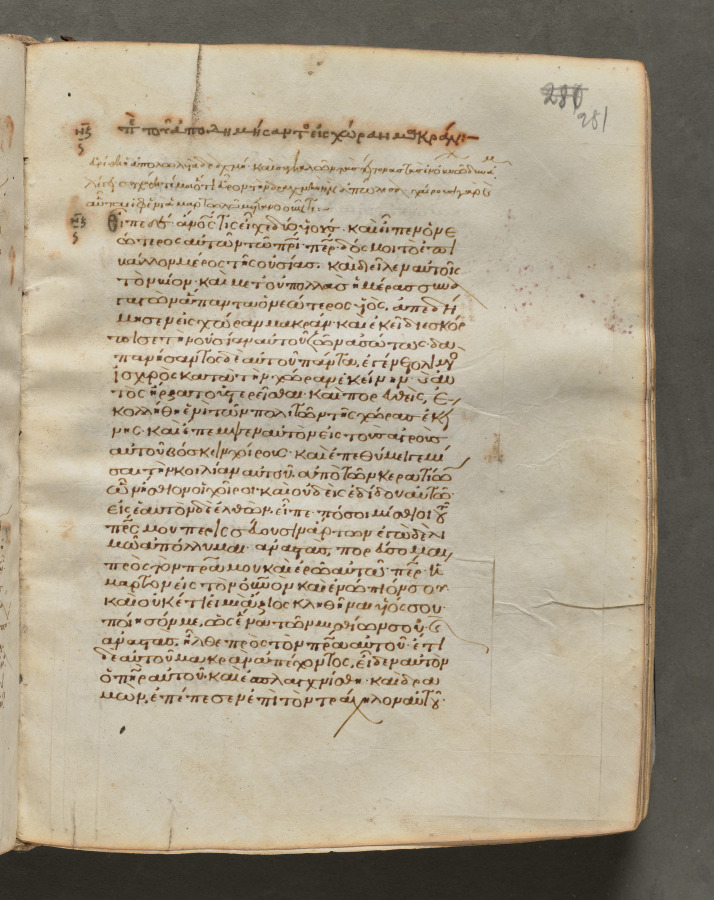 280
281
νϛ πε τοῦ ἀποδημήσαντος εἰς χώραν μακράν
νϛ Εἶπε δέ· ἄνος τις εἶχε δύο υἱούς· καὶ εἶπεν ὁ νε
ώτερος αὐτῶν τῶ πρι· περ δός μοι τὸ ἐπι
βάλλον μέρος τῆς οὐσίας. καὶ διεῖλεν αὐτοῖς
τὸν βίον· καὶ μετ' οὐ πολλὰς ἡμέρας συνα
γαγὼν ἅπαντα ὁ νεώτερος υἱός, ἀπεδή
μησεν εἰς χώραν μακράν· καὶ ἐκεῖ διεσκόρ
πισε τὴν οὐσίαν αὐτοῦ ζῶν ἀσώτως· δα
πανήσαντος δὲ αὐτοῦ πάντα, ἐγένετο λιμὸς
ἰσχυρὸς κατὰ τὴν χώραν ἐκείνην· καὶ αὐ
τὸς ἤρξατο ὑστερεῖσθαι· καὶ πορευθεὶς, ἐ
κολλήθη ἑνὶ τῶν πολιτῶν τῆς χώρας ἐκεί
νης· καὶ ἔπεμψεν αὐτὸν εἰς τοὺς ἀγροὺς
αὐτοῦ βόσκειν χοίρους· καὶ ἐπεθύμει γεμί
σαι τὴν κοιλίαν αὐτοῦ. ἀπὸ τῶν κερατίων
ὧν ἤσθιον οἱ χοῖροι· καὶ οὐδεὶς ἐδίδου αὐτῶ·
εἰς ἑαυτὸν δὲ ἐλθὼν, εἶπε· πόσοι μίσθιοι τοῦ
πρς μου περισσεύουσιν ἄρτων ἐγὼ δὲ λι
μῶ ἀπόλλυμαι· ἀναστὰς, πορεύσομαι
πρὸς τὸν πρα μου καὶ ἐρῶ αὐτῶ· περ ἥ
μαρτον εἰς τὸν οὐνον καὶ ἐνώπιόν σου·
καὶ οὐκέτι εἰμὶ ἄξιος κληθῆναι υἱός σου·
ποίησόν με, ὡς ἕνα τῶν μισθίων σου· καὶ
ἀναστὰς, ἦλθε πρὸς τὸν πρα αὐτοῦ· ἔτι
δὲ αὐτοῦ μακρὰν ἀπέχοντος, εἶδεν αὐτὸν
ὁ πηρ αὐτοῦ· καὶ ἐσπλαγχνίσθη· καὶ δρα
μὼν, ἐπέπεσεν ἐπὶ τὸν τράχηλον αὐτοῦ·